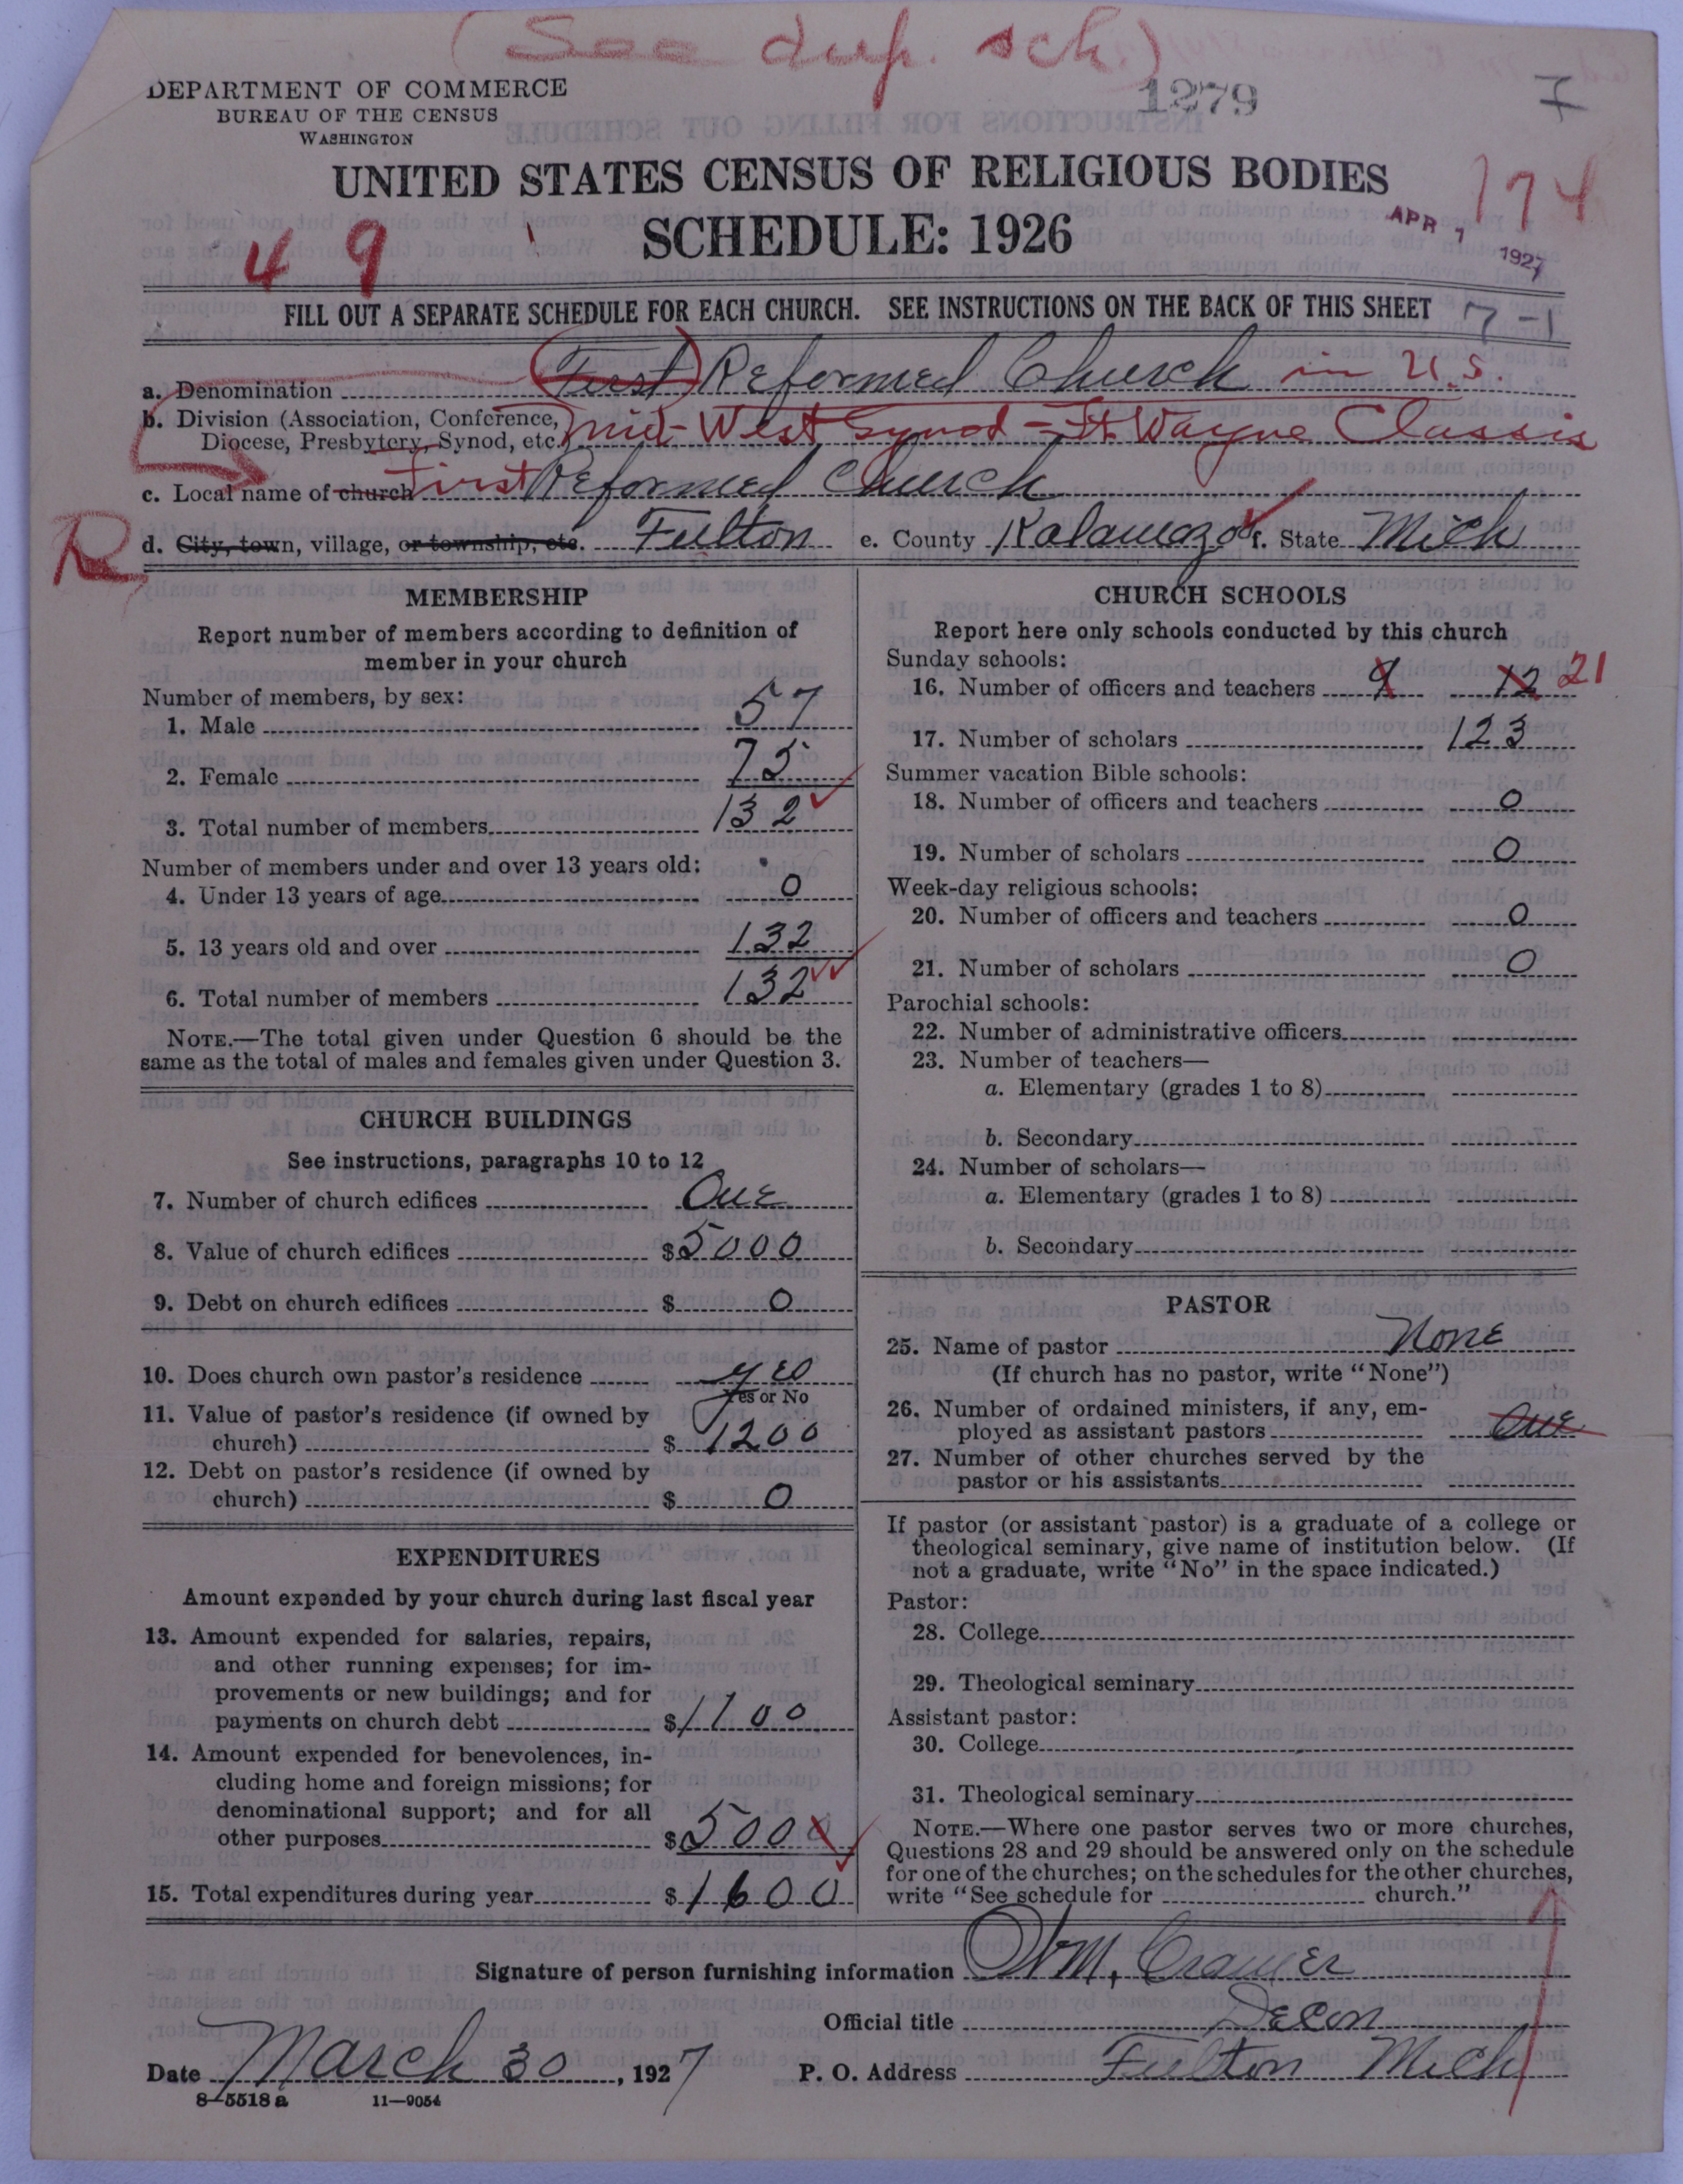 (See dup. sch.)
DEPARTMENT OF COMMERCE
BUREAU OF THE CENSUS
WASHINGTON
1279
7
UNITED STATES CENSUS OF RELIGIOUS BODIES
174
SCHEDULE: 1926
APR 7 1927
49
FILL OUT A SEPARATE SCHEDULE FOR EACH CHURCH. SEE INSTRUCTIONS ON THE BACK OF THIS SHEET 7-1
a. Denomination First Reformed Church in U.S.
b. Division (Association, Conference,
Diocese, Presbytery, Synod, etc.) Mid-West Synod - Ft Wayne Classis
c. Local name of church First Reformed Church
R
d. City, town, village, or township, etc. Fulton e. County Kalamazoo f. State Mich
MEMBERSHIP
Report number of members according to definition of
member in your church
Number of members, by sex:
1. Male 57
2. Female 75
3. Total number of members 132
Number of members under and over 13 years old:
4. Under 13 years of age 0
5. 13 years old and over 132
6. Total number of members 132
NOTE.—The total given under Question 6 should be the
same as the total of males and females given under Question 3.
CHURCH BUILDINGS
See instructions, paragraphs 10 to 12
7. Number of church edifices One
8. Value of church edifices $5000
9. Debt on church edifices $ 0
10. Does church own pastor's residence yes
Yes or No
11. Value of pastor's residence (if owned by
church) $ 1200
12. Debt on pastor's residence (if owned by
church) $ 0
EXPENDITURES
Amount expended by your church during last fiscal year
13. Amount expended for salaries, repairs,
and other running expenses; for im-
provements or new buildings; and for
payments on church debt $1100
14. Amount expended for benevolences, in-
cluding home and foreign missions; for
denominational support; and for all
other purposes $5000
15. Total expenditures during year $1600
CHURCH SCHOOLS
Report here only schools conducted by this church
Sunday schools:
16. Number of officers and teachers 9 12 21
17. Number of scholars 123
Summer vacation Bible schools:
18. Number of officers and teachers 0
19. Number of scholars 0
Week-day religious schools:
20. Number of officers and teachers 0
21. Number of scholars 0
Parochial schools:
22. Number of administrative officers
23. Number of teachers—
a. Elementary (grades 1 to 8)
b. Secondary
24. Number of scholars—
a. Elementary (grades 1 to 8)
b. Secondary
PASTOR
25. Name of pastor None
(If church has no pastor, write "None")
26. Number of ordained ministers, if any, em-
ployed as assistant pastors One
27. Number of other churches served by the
pastor or his assistants
If pastor (or assistant pastor) is a graduate of a college or
theological seminary, give name of institution below. (If
not a graduate, write "No" in the space indicated.)
Pastor:
28. College
29. Theological seminary
Assistant pastor:
30. College
31. Theological seminary
NOTE.—Where one pastor serves two or more churches,
Questions 28 and 29 should be answered only on the schedule
for one of the churches; on the schedules for the other churches,
write "See schedule for church."
Signature of person furnishing information Wm. Cramer
Official title Decon
Date March 30, 1927 P. O. Address Fulton Mich
8-5518 a 11-9054